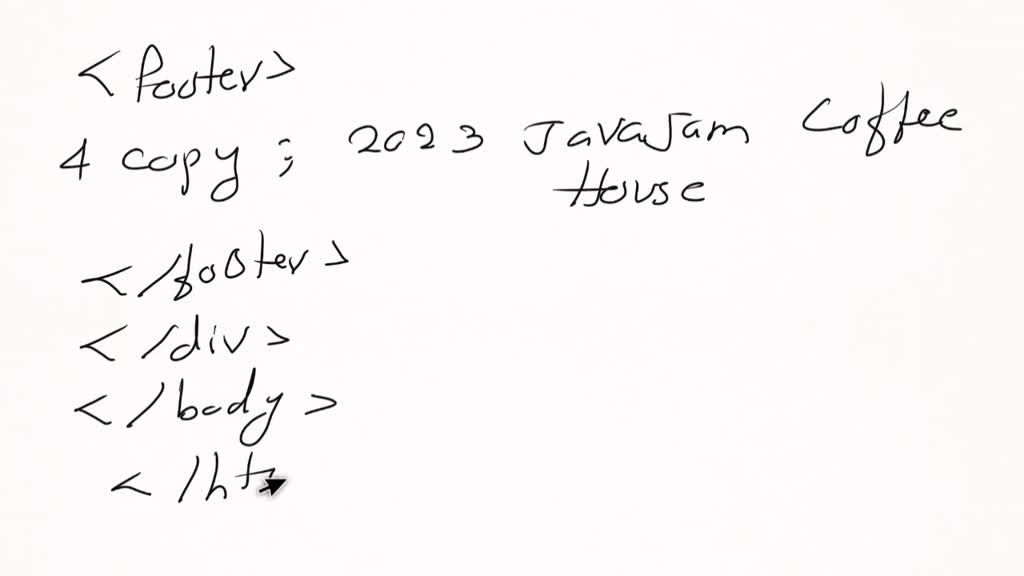 <footer>
& copy; 2023 JavaJam Coffee
House
</footer>
</div>
</body>
</ht